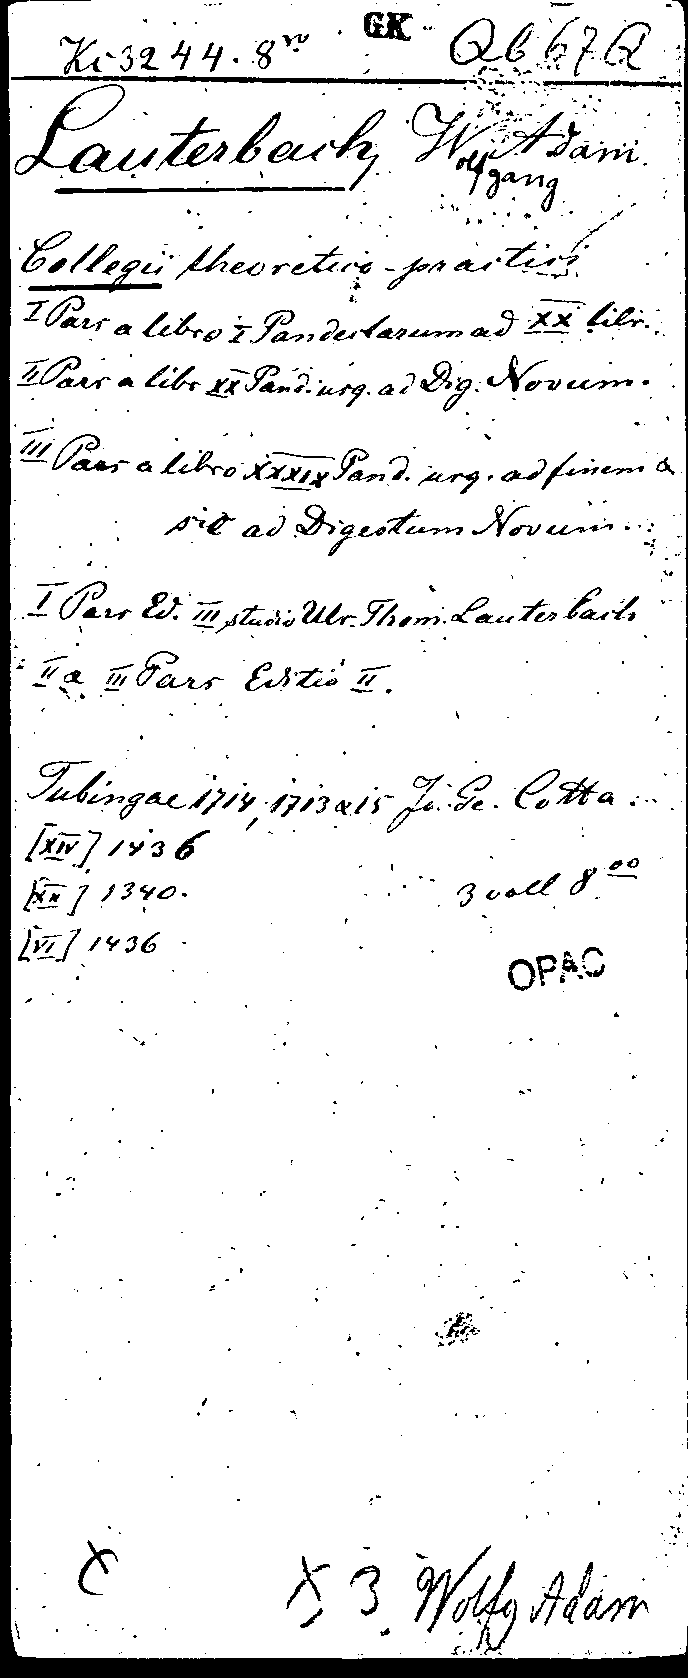 Kc3244. 8vo GK Qb 67 Q
Lauterbach, Wolfgang Adam.
Collegii theoretico-practici
I Pars a libro I Pandectarum ad XX libr.
II Pars a libr XX Pand. usq. ad Dig. Novum.
III Pars a libro XXXIX Pand. usq. ad finem &
sic ad Digestum Novum.
I Pars Ed. III studio Ulr. Thom. Lauterbach
II & III Pars Editio II.
Tubingae 1714, 1713 & 15 Jo. Ge. Cotta.
[XIV] 1436
[XII] 1340. 3 voll 8oo
[VI] 1436
OPAC
X 3 Wolfg Adam